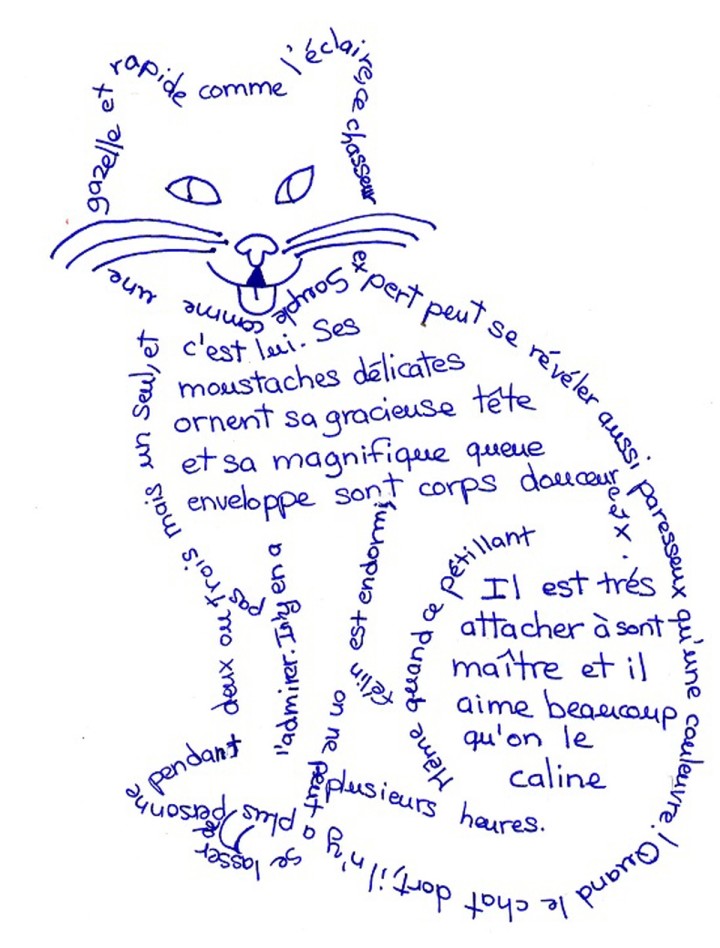 Souple comme une
gazelle et rapide comme l'éclaire, ce chasseur
expert peut se révéler aussi paresseux qu'une couleuvre! Quand le chat dort, il n'y a plus personne
pendant
plusieurs heures.
Même quand ce pétillant
félin est endormi
on ne peut
se lasser de
l'admirer. Il n'y en a
pas
deux ou trois mais un seul, et
c'est lui. Ses
moustaches délicates
ornent sa gracieuse tête
et sa magnifique queue
enveloppe sont corps douceureux.
Il est trés
attacher à sont
maître et il
aime beaucoup
qu'on le
caline